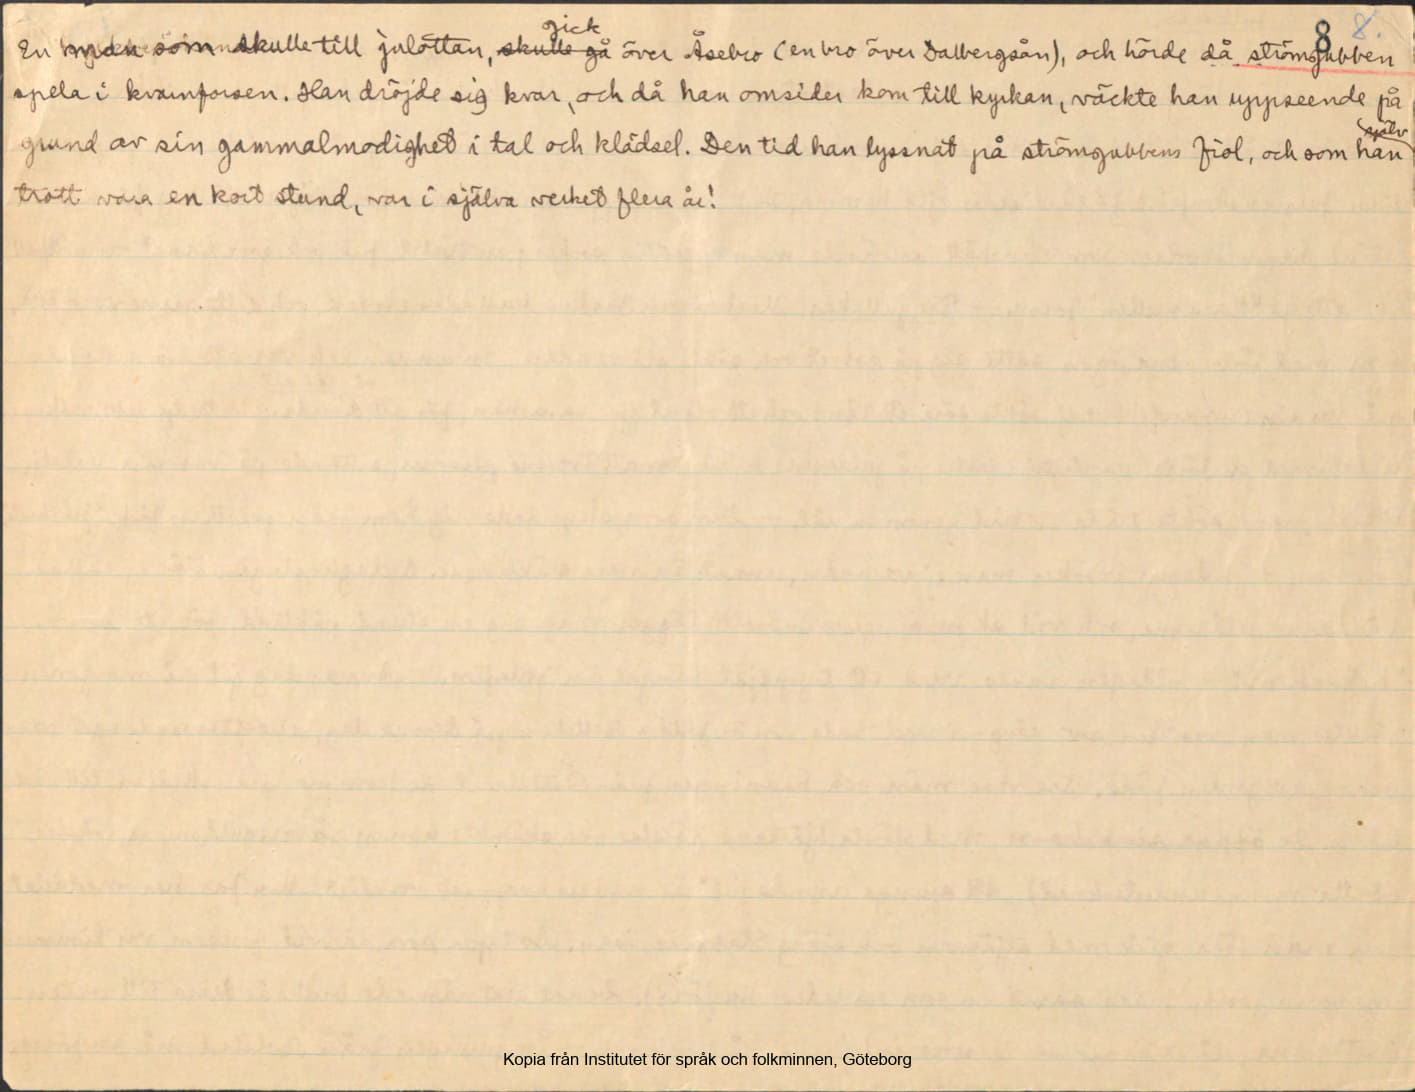 8 8.
En man som skulle till julottan, gick över Åsebro (en bro över Dalbergsån), och hörde då strömgubben
spela i kvarnforsen. Han dröjde sig kvar, och då han omsider kom till kyrkan, väckte han uppseende på
grund av sin gammalmodighet i tal och klädsel. Den tid han lyssnat på strömgubbens fiol, och som han själv
trott vara en kort stund, var i själva verket flera år!
Kopia från Institutet för språk och folkminnen, Göteborg